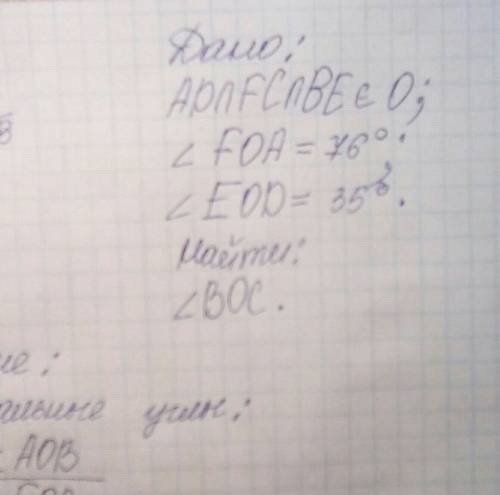 в
Дано:
AD∩FC∩BE ∈ O;
∠ FOA = 76°;
∠ EOD = 35°.
Найти:
∠BOC.
ие:
альные углы:
∠ AOB